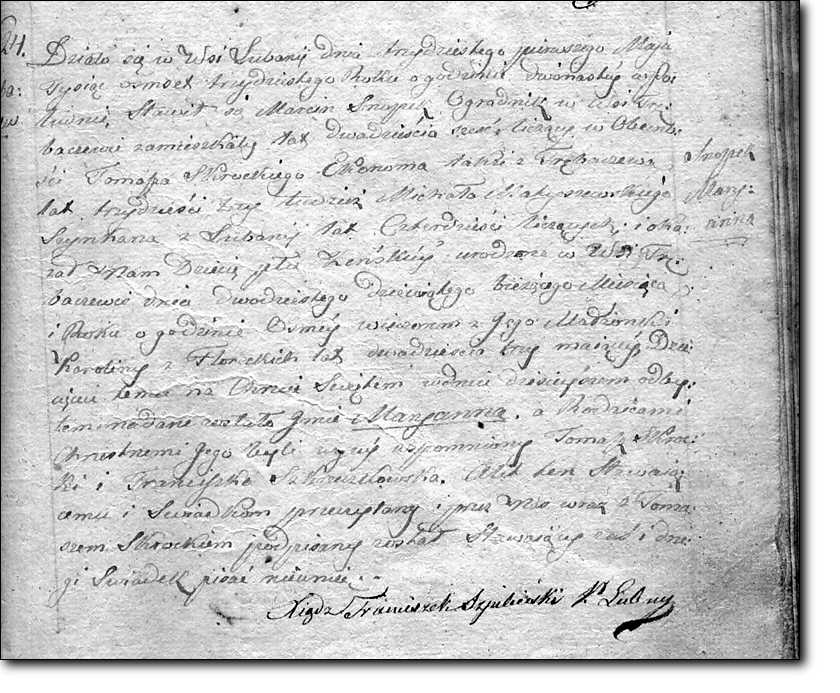 24.
Działo się w Wsi Lubani dnia trzydziestego pierwszego Maja
Tysiąc osmset trzydziestego Roku o godzinie dwonastey w po
łudnie, Stawił się Marcin Snopek, Ogrodnik w Wsi Trę:
baczewie zamieszkały lat dwadzieścia sześć liczący w Obecno:
ści Tomasza Skrockiego Ekonoma także z Trębaczewa
lat trzydzieści trzy tudzież Michała Matyszewskiego
Szynkarza z Lubani lat Czterdzieści liczących, i oka:
zał Nam Dziecię płci Żeńskiey urodzone w Wsi Trę:
baczewie dnia dwudziestego dziewiątego bieżącego Miesiąca
i Roku o godzinie Osmey wieczorem z Jego Małżonki
Karoliny z Floreckich lat dwadzieścia trzy maiącey Dzie
cięciu temu na Chrzcie Świętym w dniu dzisieyszem odby:
tem nadane zostało Jmie Maryanna, a Rodzicami
Chrzestnemi Jego byli wyżey wspomniony Tomasz Skroc:
ki i Franciszka. Akt ten Stawaią:
cemu i Swiadkom przeczytany i przez Nas wraz z Toma
szem Skrockiem podpisany został Stawaiący zaś i dru
gi Swiadek pisać nieumie.
Xiądz Franciszek P. Lubany
Snopek
Mary:
anna